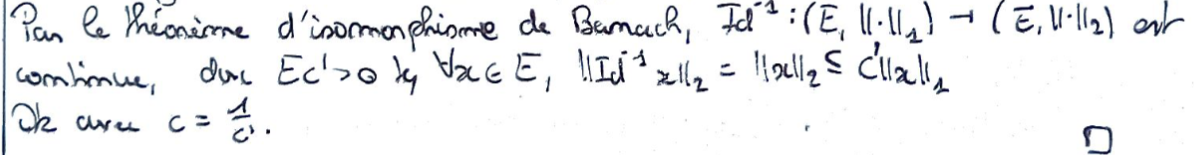 Par le théorème d'isomorphisme de Banach, Id⁻¹ : (E, ||·||₁) → (E, ||·||₂) est
continue, donc ∃C'>0 tq ∀x ∈ E, ||Id⁻¹x||₂ = ||x||₂ ≤ C'||x||₁
Ok avec c = 1/C'. □